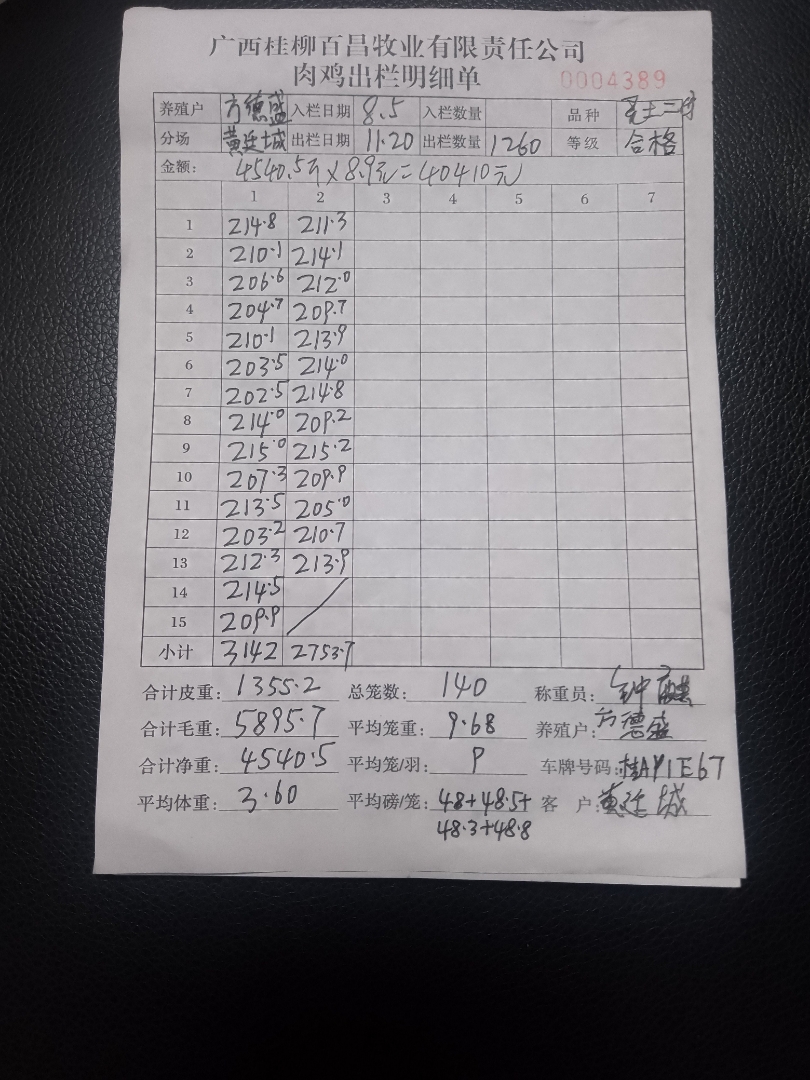 广西桂柳百昌牧业有限责任公司
肉鸡出栏明细单 0004389
养殖户 方德盛 入栏日期 8.5 入栏数量 品种 土三
分场 黄廷城 出栏日期 11.20 出栏数量 1260 等级 合格
金额: 4540.5斤×8.9元=40410元
1 2 3 4 5 6 7
1 214.8 211.3
2 210.1 214.1
3 206.6 212.0
4 204.7 209.7
5 210.1 213.9
6 203.5 214.0
7 202.5 214.8
8 214.0 209.2
9 215.0 215.2
10 207.3 209.9
11 213.5 205.0
12 203.2 210.7
13 212.3 213.9
14 214.5
15 209.9
小计 3142 2753.7
合计皮重: 1355.2 总笼数: 140 称重员: 钟麒
合计毛重: 5895.7 平均笼重: 9.68 养殖户: 方德盛
合计净重: 4540.5 平均笼/羽: 9 车牌号码: 桂AY1E67
平均体重: 3.60 平均磅/笼: 48+48.5+ 客户: 黄廷城
48.3+48.8